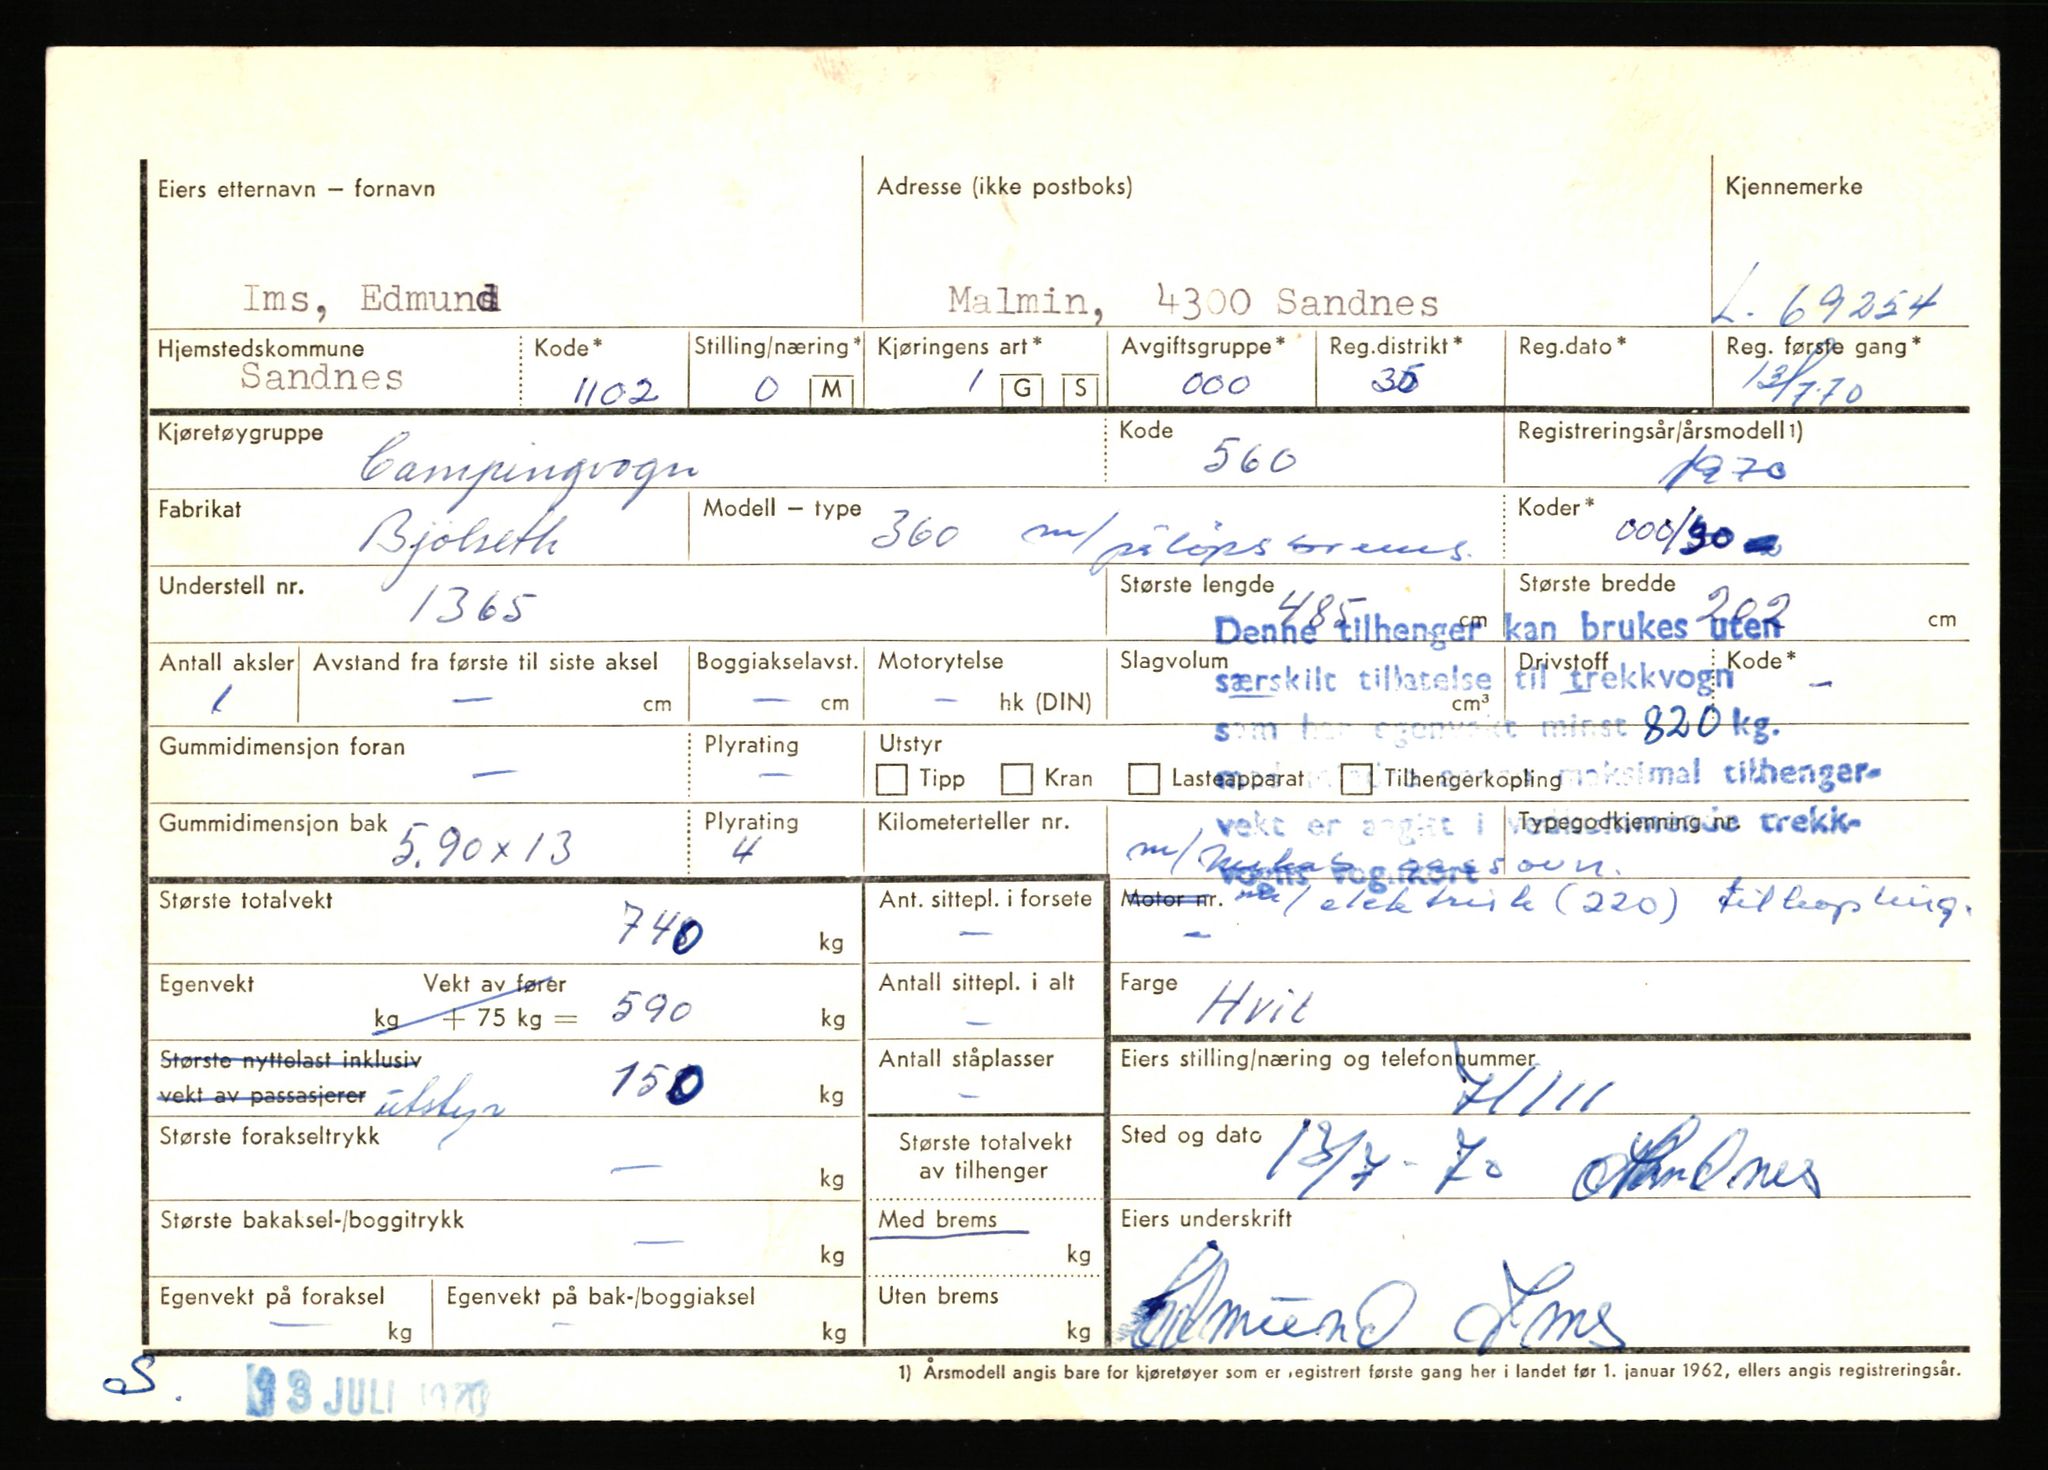 Eiers etternavn – fornavn Adresse (ikke postboks) Kjennemerke
Ims, Edmund Malmin, 4300 Sandnes L. 69254
Hjemstedskommune Kode* Stilling/næring* Kjøringens art* Avgiftsgruppe* Reg.distrikt* Reg.dato* Reg. første gang*
Sandnes 1102 0 M 1 G S 000 35 13/7.70
Kjøretøygruppe Kode Registreringsår/årsmodell 1)
Campingvogn 560 1970
Fabrikat Modell – type Koder*
Bjölseth 360 m/påløpsbrems. 000/30
Understell nr. Største lengde Største bredde
1365 485 cm 202 cm
Denne tilhenger kan brukes uten
Antall aksler Avstand fra første til siste aksel Boggiakselavst. Motorytelse Slagvolum Drivstoff Kode*
særskilt tillatelse til trekkvogn
1 — cm — cm — hk (DIN) cm³ —
som har egenvekt minst 820 kg.
Gummidimensjon foran Plyrating Utstyr
— — Tipp Kran Lasteapparat Tilhengerkopling
maksimal tilhenger-
Gummidimensjon bak Plyrating Kilometerteller nr. Typegodkjenning nr.
vekt er angitt i vedkommende trekk-
5.90 x 13 4 m/ ovn.
vogns vognkort
Største totalvekt Ant. sittepl. i forsete Motor nr. m/elektrisk (220) tilkopling.
740 kg — —
Egenvekt Vekt av fører Antall sittepl. i alt Farge
kg + 75 kg = 590 kg — Hvit
Største nyttelast inklusiv Antall ståplasser Eiers stilling/næring og telefonnummer
vekt av passasjerer utstyr 150 kg — 71111
Største forakseltrykk Største totalvekt Sted og dato
— kg av tilhenger 13/7-70 Sandnes
Største bakaksel-/boggitrykk Med brems Eiers underskrift
— kg kg
Egenvekt på foraksel Egenvekt på bak-/boggiaksel Uten brems
— kg — kg kg Edmund Ims
1) Årsmodell angis bare for kjøretøyer som er registrert første gang her i landet før 1. januar 1962, ellers angis registreringsår.
S.
13 JULI 1970